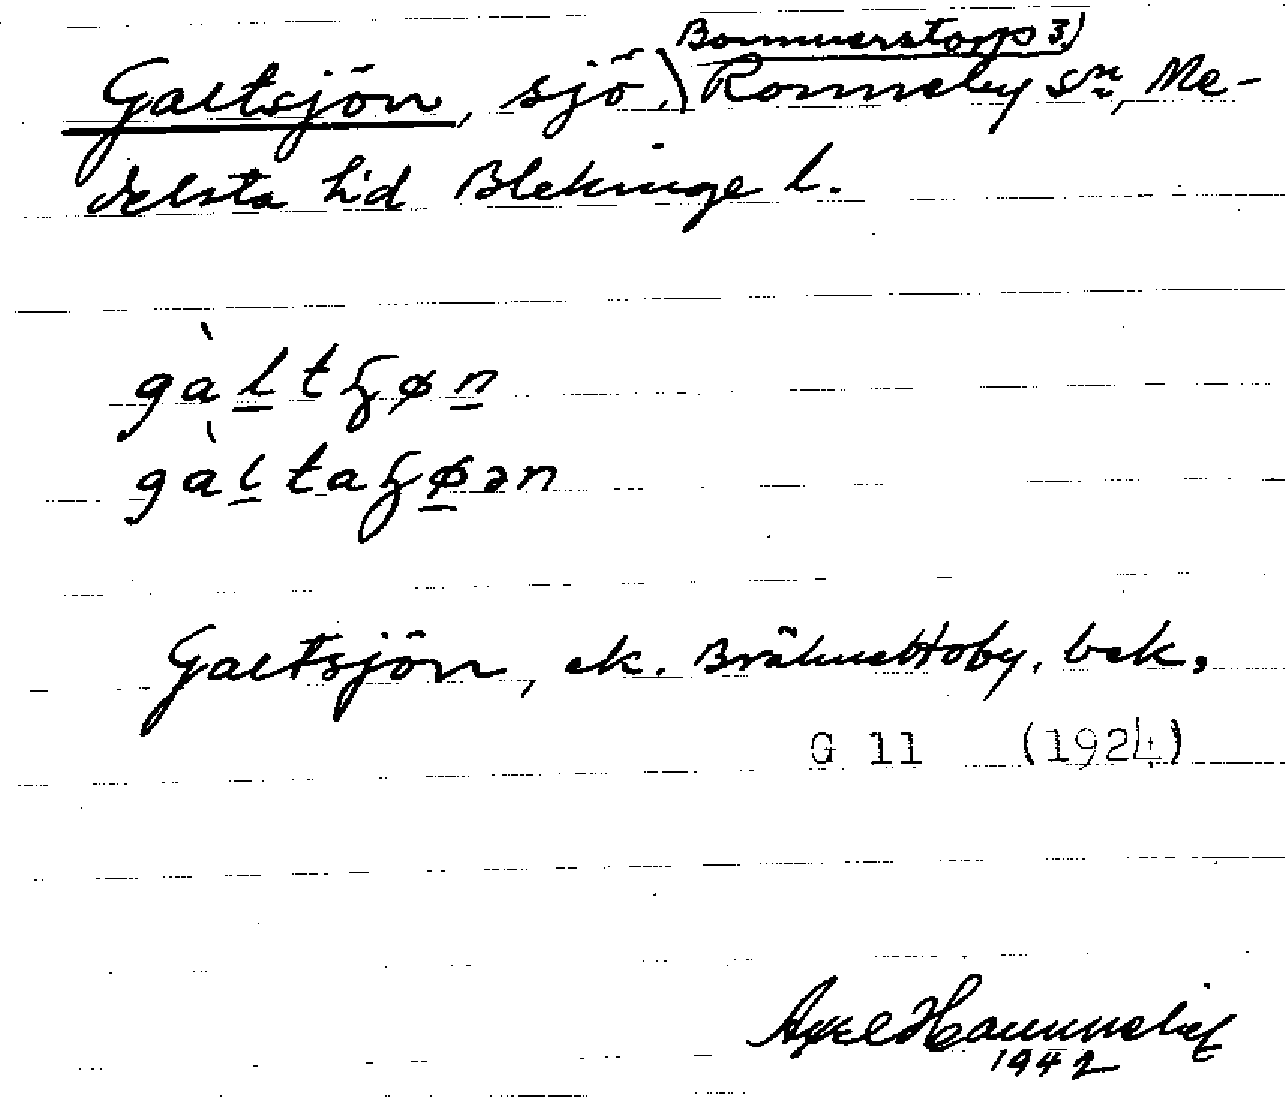 Bommerstorp 3.)
Galtsjön, sjö, Ronneby sn, Me-
delsta hd Blekinge l.
gàltʒøn
gàltaʒøən
Galtsjön, ek. BräkneHoby, bek,
G 11 (1924)
Axel
1942